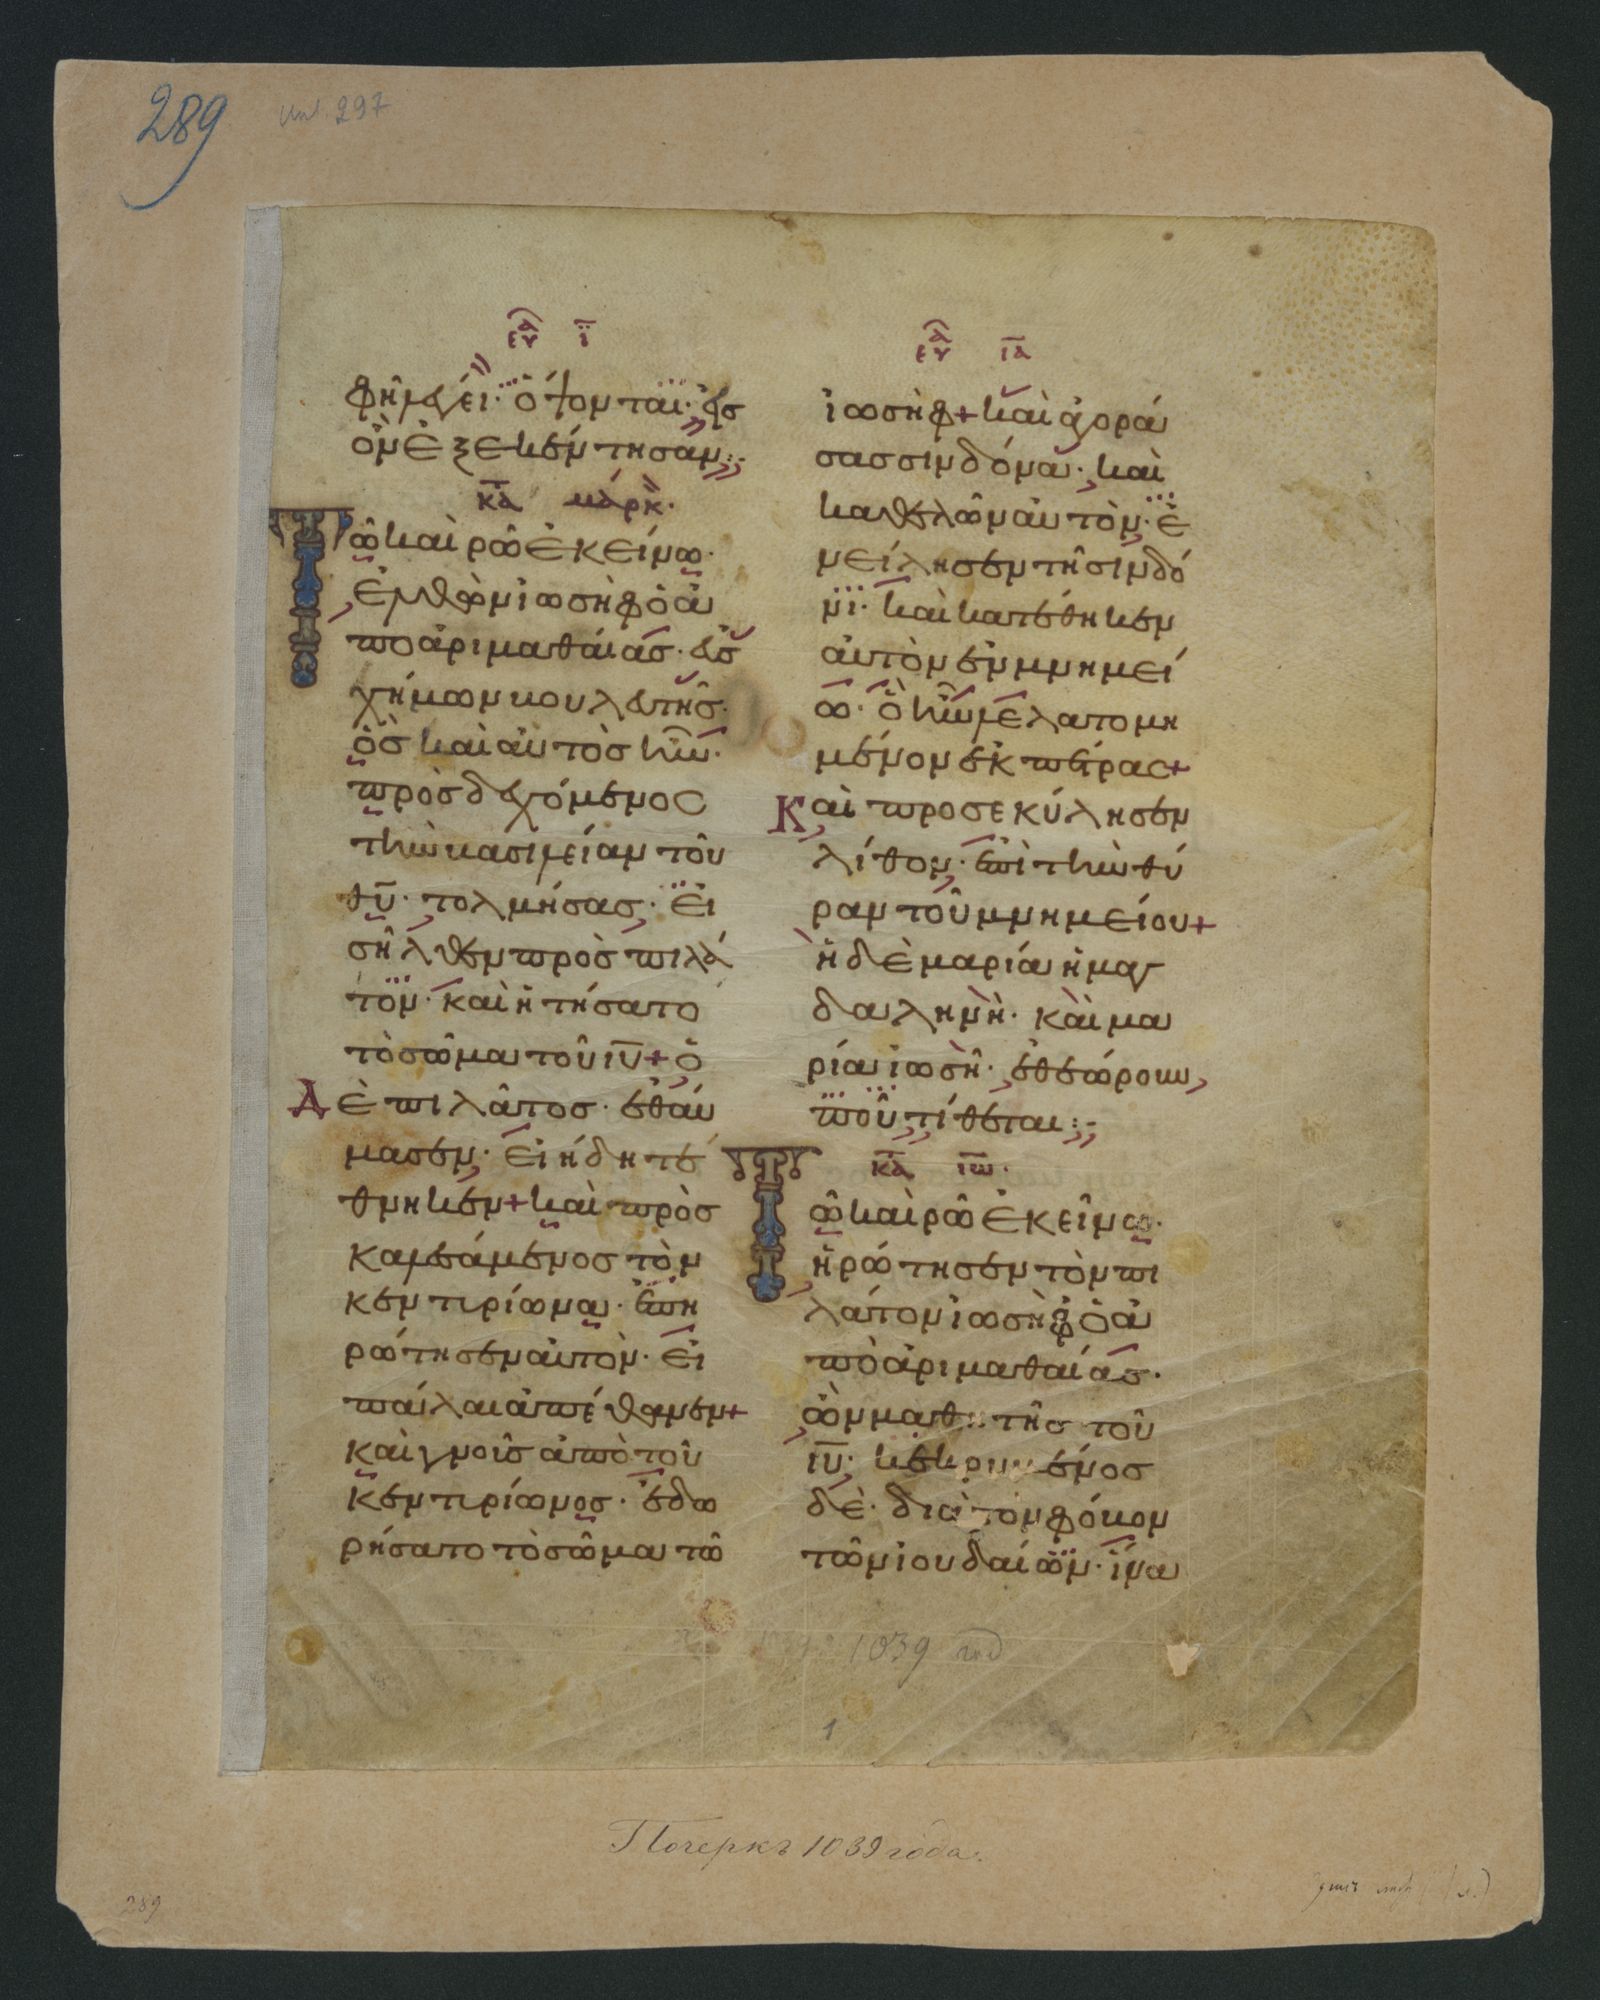 289
297
ευα ι
φὴ λέγει· ὄψονται· εἰσ
ὃν ἐξεκέντησαν:
κτα μάρκ·
Τῶ καιρῶ ἐκείνω·
ἐλθὼν ἰωσὴφ ὁ ἀ
πὸ ἀριμαθαίασ· εὐσ
χήμων βουλευτῆσ·
ὃσ καὶ αὐτὸσ ἦν·
προσδεχόμενοσ
τὴν βασιλείαν τοῦ
θυ· τολμήσασ· εἰ
σῆλθεν πρὸσ πιλᾶ
τον· καὶ ἠτήσατο
τὸ σῶμα τοῦ ιυ+ ὁ
Δὲ πιλᾶτοσ· ἐθαύ
μασεν· εἰ ἤδη τέ
θνηκεν+ καὶ προσ
καλεσάμενοσ τὸν
κεντυρίωνα· ἐπη
ρώτησεν αὐτὸν· εἰ
πάλαι ἀπέθανεν+
καὶ γνοὺσ ἀπὸ τοῦ
κεντυρίωνοσ· ἐδω
ρήσατο τὸ σῶμα τῶ
ευα ια
ἰωσὴφ+ καὶ ἀγορά
σασ σινδόνα· καὶ
καθελὼν αὐτὸν· ἐ
νείλησεν τῆ σινδό
νι· καὶ κατέθηκεν
αὐτὸν ἐν μνημεί
ω· ὃ ἦν λελατομη
μένον ἐκ πέτρασ+
Καὶ προσεκύλησεν
λίθον· ἐπὶ τὴν θύ
ραν τοῦ μνημείου+
ἡ δὲ μαρία ἡ μαγ
δαληνὴ· καὶ μα
ρία ἰωσῆ· ἐθεώρουν
ποῦ τίθεται:
κτα ιω·
Τῶ καιρῶ ἐκεῖνω·
ἠρώτησεν τὸν πι
λάτον ἰωσὴφ ὁ ἀ
πὸ ἀριμαθαίασ·
ὢν μαθητῆσ τοῦ
ιυ· κεκρυμμένοσ
δὲ· διὰ τὸν φόβον
τῶν ἰουδαίων· ἵνα
1039 год
1
Почеркъ 1039 года.
289